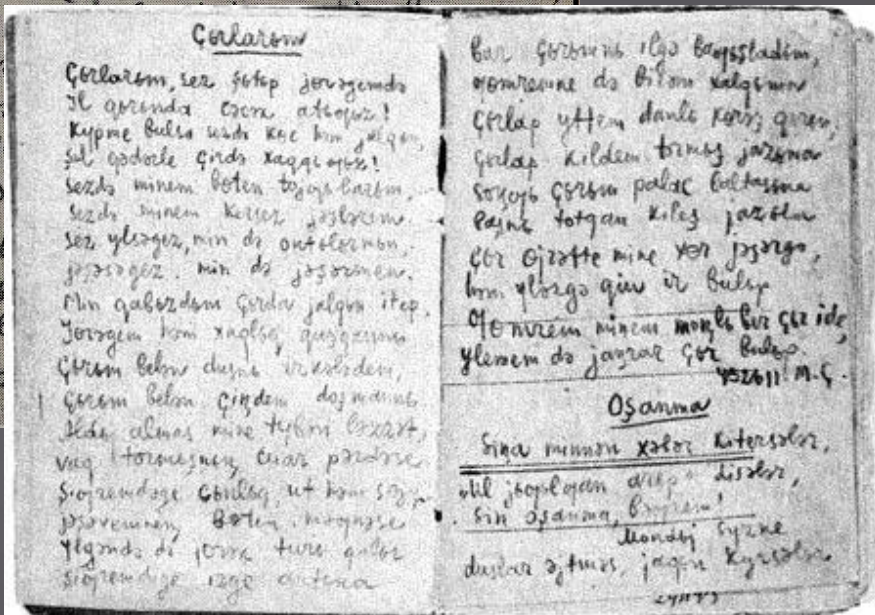 Çьrlarьm
Çьrlarьm, sez şьtьp jɵrəgemdə
Il qьrьnda cəcək atьƣьz!
Kypme bulsa sezdə kɵc həm jalqьn,
Şul qədərle çirdə xaqqьƣьz!
Sezdə minem bɵten tojƣьlarьm,
Sezdə minem kersez jəşlərem.
Sez ylsəgez, min də ontьlьrmьn,
jəşəsəgez, min də jəşərmen.
Min qabьzdьm çьrda jalqьn itep
Jɵrəgem həm xaqlьq quşqannь
Çьrьm belən dusnь irkələdem,
Çьrьm belən çiŋdem doşmannь
Aldьj almas mine tybən ləzzət,
vaq tormьşnьŋ cuar pərdəse
Şiƣremdəge cьnlьq, ut həm sɵjy
jəşəvemneŋ bɵten məƣnəse
Ylgəndə də jɵrək turь qalьr
Şiƣremdəge izge antьna
Bar çьrьmnь ilgə baƣьşladьm,
ƣomremne də birəm xalqьma
Çьrlap yttem danlь kɵrəş qьrьn,
Çьrlap kildem tormьş jazьna
Soŋƣь çьrьm palac baltasьna
Başnь totqan kileş jazьla
Çьr ɵjrətte mine xɵr jəşərgə,
həm ylərgə qьju ir bulьp
Ƣomrem minem moŋlь ber çьr ide,
ylemem də jaŋrar çьr bulьp.
M.Ç.
Oşanma
Siŋa minnən xəbər kitersələr,
disələr,
Sin oşanma, bəƣrem!
Mondьj syzne
duslar əjtməs, jaqьn kyrsələr